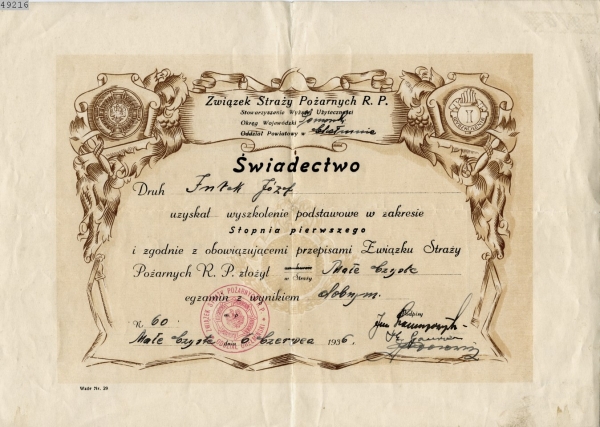 49216
Związek Straży Pożarnych R. P.
Stowarzyszenie Wyższej Użyteczności
Okręg Wojewódzki Pomorski
Oddział Powiatowy w Chełmnie
Świadectwo
Druh Intek Józef
uzyskał wyszkolenie podstawowe w zakresie
Stopnia pierwszego
i zgodnie z obowiązującemi przepisami Związku Straży
Pożarnych R. P. złożył w Straży Małe Czyste
egzamin z wynikiem dobrym.
Nr 60.
Podpisy
Małe Czyste dnia 6 Czerwca 1936.
Wzór Nr. 28